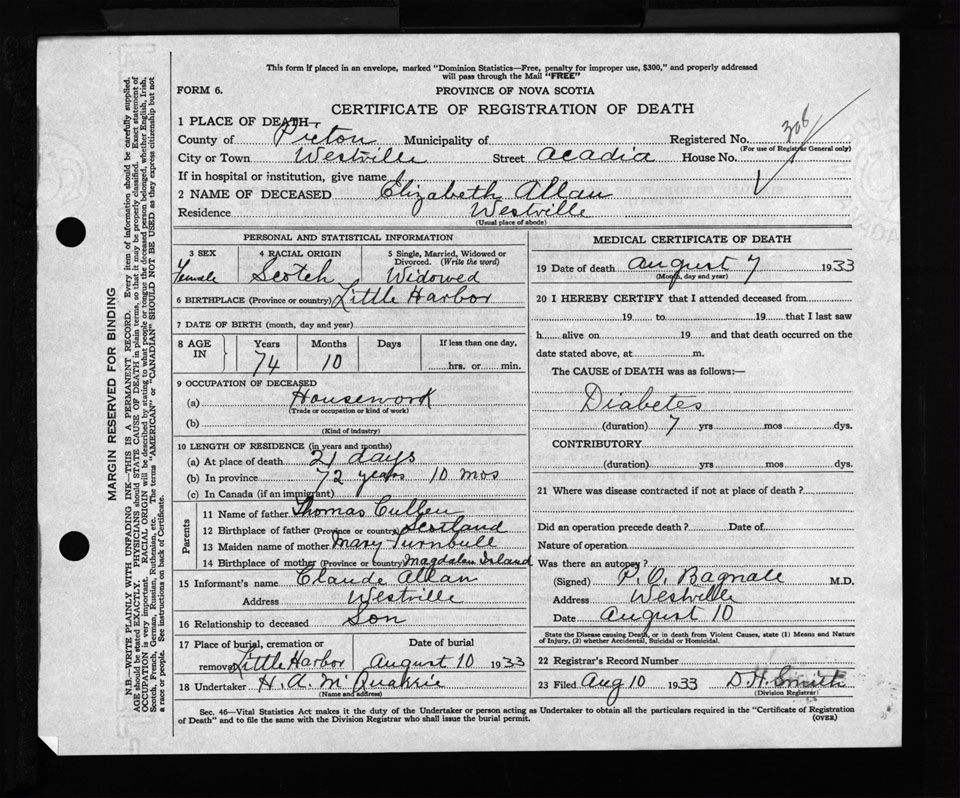 This form if placed in an envelope, marked "Dominion Statistics—Free, penalty for improper use, $300," and properly addressed
will pass through the Mail "FREE"
FORM 6.
PROVINCE OF NOVA SCOTIA
CERTIFICATE OF REGISTRATION OF DEATH
1 PLACE OF DEATH—
County of Pictou Municipality of Registered No. 308
(For use of Registrar General only)
City or Town Westville Street Acadia House No.
If in hospital or institution, give name
2 NAME OF DECEASED Elizabeth Allan
Residence Westville
(Usual place of abode)
PERSONAL AND STATISTICAL INFORMATION
3 SEX 4 RACIAL ORIGIN 5 Single, Married, Widowed or Divorced. (Write the word)
Female Scotch Widowed
6 BIRTHPLACE (Province or country) Little Harbor
7 DATE OF BIRTH (month, day and year)
8 AGE IN Years Months Days If less than one day,
74 10 hrs. or min.
9 OCCUPATION OF DECEASED
(a) Housework
(Trade or occupation or kind of work)
(b)
(Kind of industry)
10 LENGTH OF RESIDENCE (in years and months)
(a) At place of death 21 days
(b) In province 72 years 10 mos
(c) In Canada (if an immigrant)
Parents
11 Name of father Thomas Cullen
12 Birthplace of father (Province or country) Scotland
13 Maiden name of mother Mary Turnbull
14 Birthplace of mother (Province or country) Magdalan Island
15 Informant's name Claude Allan
Address Westville
16 Relationship to deceased Son
17 Place of burial, cremation or Date of burial
removal Little Harbor August 10 1933
18 Undertaker H. A. McQuarrie
(Name and address)
MEDICAL CERTIFICATE OF DEATH
19 Date of death August 7 1933
(Month, day and year)
20 I HEREBY CERTIFY that I attended deceased from
19 to 19 that I last saw
h alive on 19 and that death occurred on the
date stated above, at m.
The CAUSE of DEATH was as follows:—
Diabetes
(duration) 7 yrs mos dys.
CONTRIBUTORY
(duration) yrs mos dys.
21 Where was disease contracted if not at place of death?
Did an operation precede death? Date of
Nature of operation
Was there an autopsy?
(Signed) P. O. Bagnall M.D.
Address Westville
Date August 10
State the Disease causing Death, or in death from Violent Causes, state (1) Means and Nature
of Injury, (2) whether Accidental, Suicidal or Homicidal.
22 Registrar's Record Number
23 Filed Aug 10 1933 D. H. Smith
(Division Registrar)
Sec. 46—Vital Statistics Act makes it the duty of the Undertaker or person acting as Undertaker to obtain all the particulars required in the "Certificate of Registration
of Death" and to file the same with the Division Registrar who shall issue the burial permit.
(OVER)
MARGIN RESERVED FOR BINDING
N.B.—WRITE PLAINLY WITH UNFADING INK—THIS IS A PERMANENT RECORD. Every item of information should be carefully supplied.
AGE should be stated EXACTLY. PHYSICIANS should STATE CAUSE OF DEATH in plain terms, so that it may be properly classified. Exact statement of
OCCUPATION is very important. RACIAL ORIGIN will be described by stating to what people or tongue the deceased person belonged, whether English, Irish,
Scotch, French, German, Russian, Ruthenian, etc. The terms "AMERICAN" or "CANADIAN" SHOULD NOT BE USED as they express citizenship but not
a race or people. See instructions on back of Certificate.